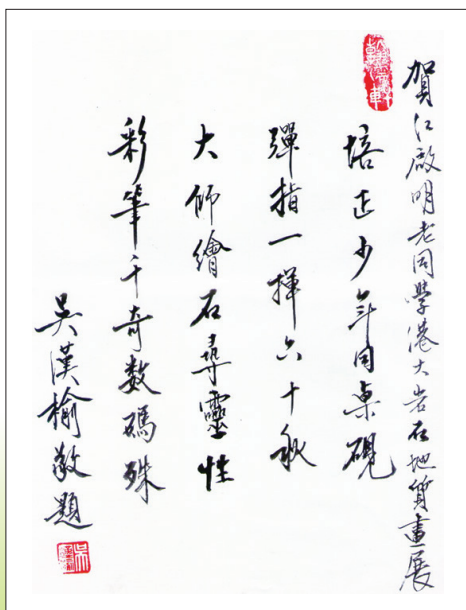 賀江啟明老同學港大岩石地質畫展
培正少年同桌硯
彈指一揮六十秋
大師繪石尋靈性
彩筆千奇数碼殊
吳漢榆敬題